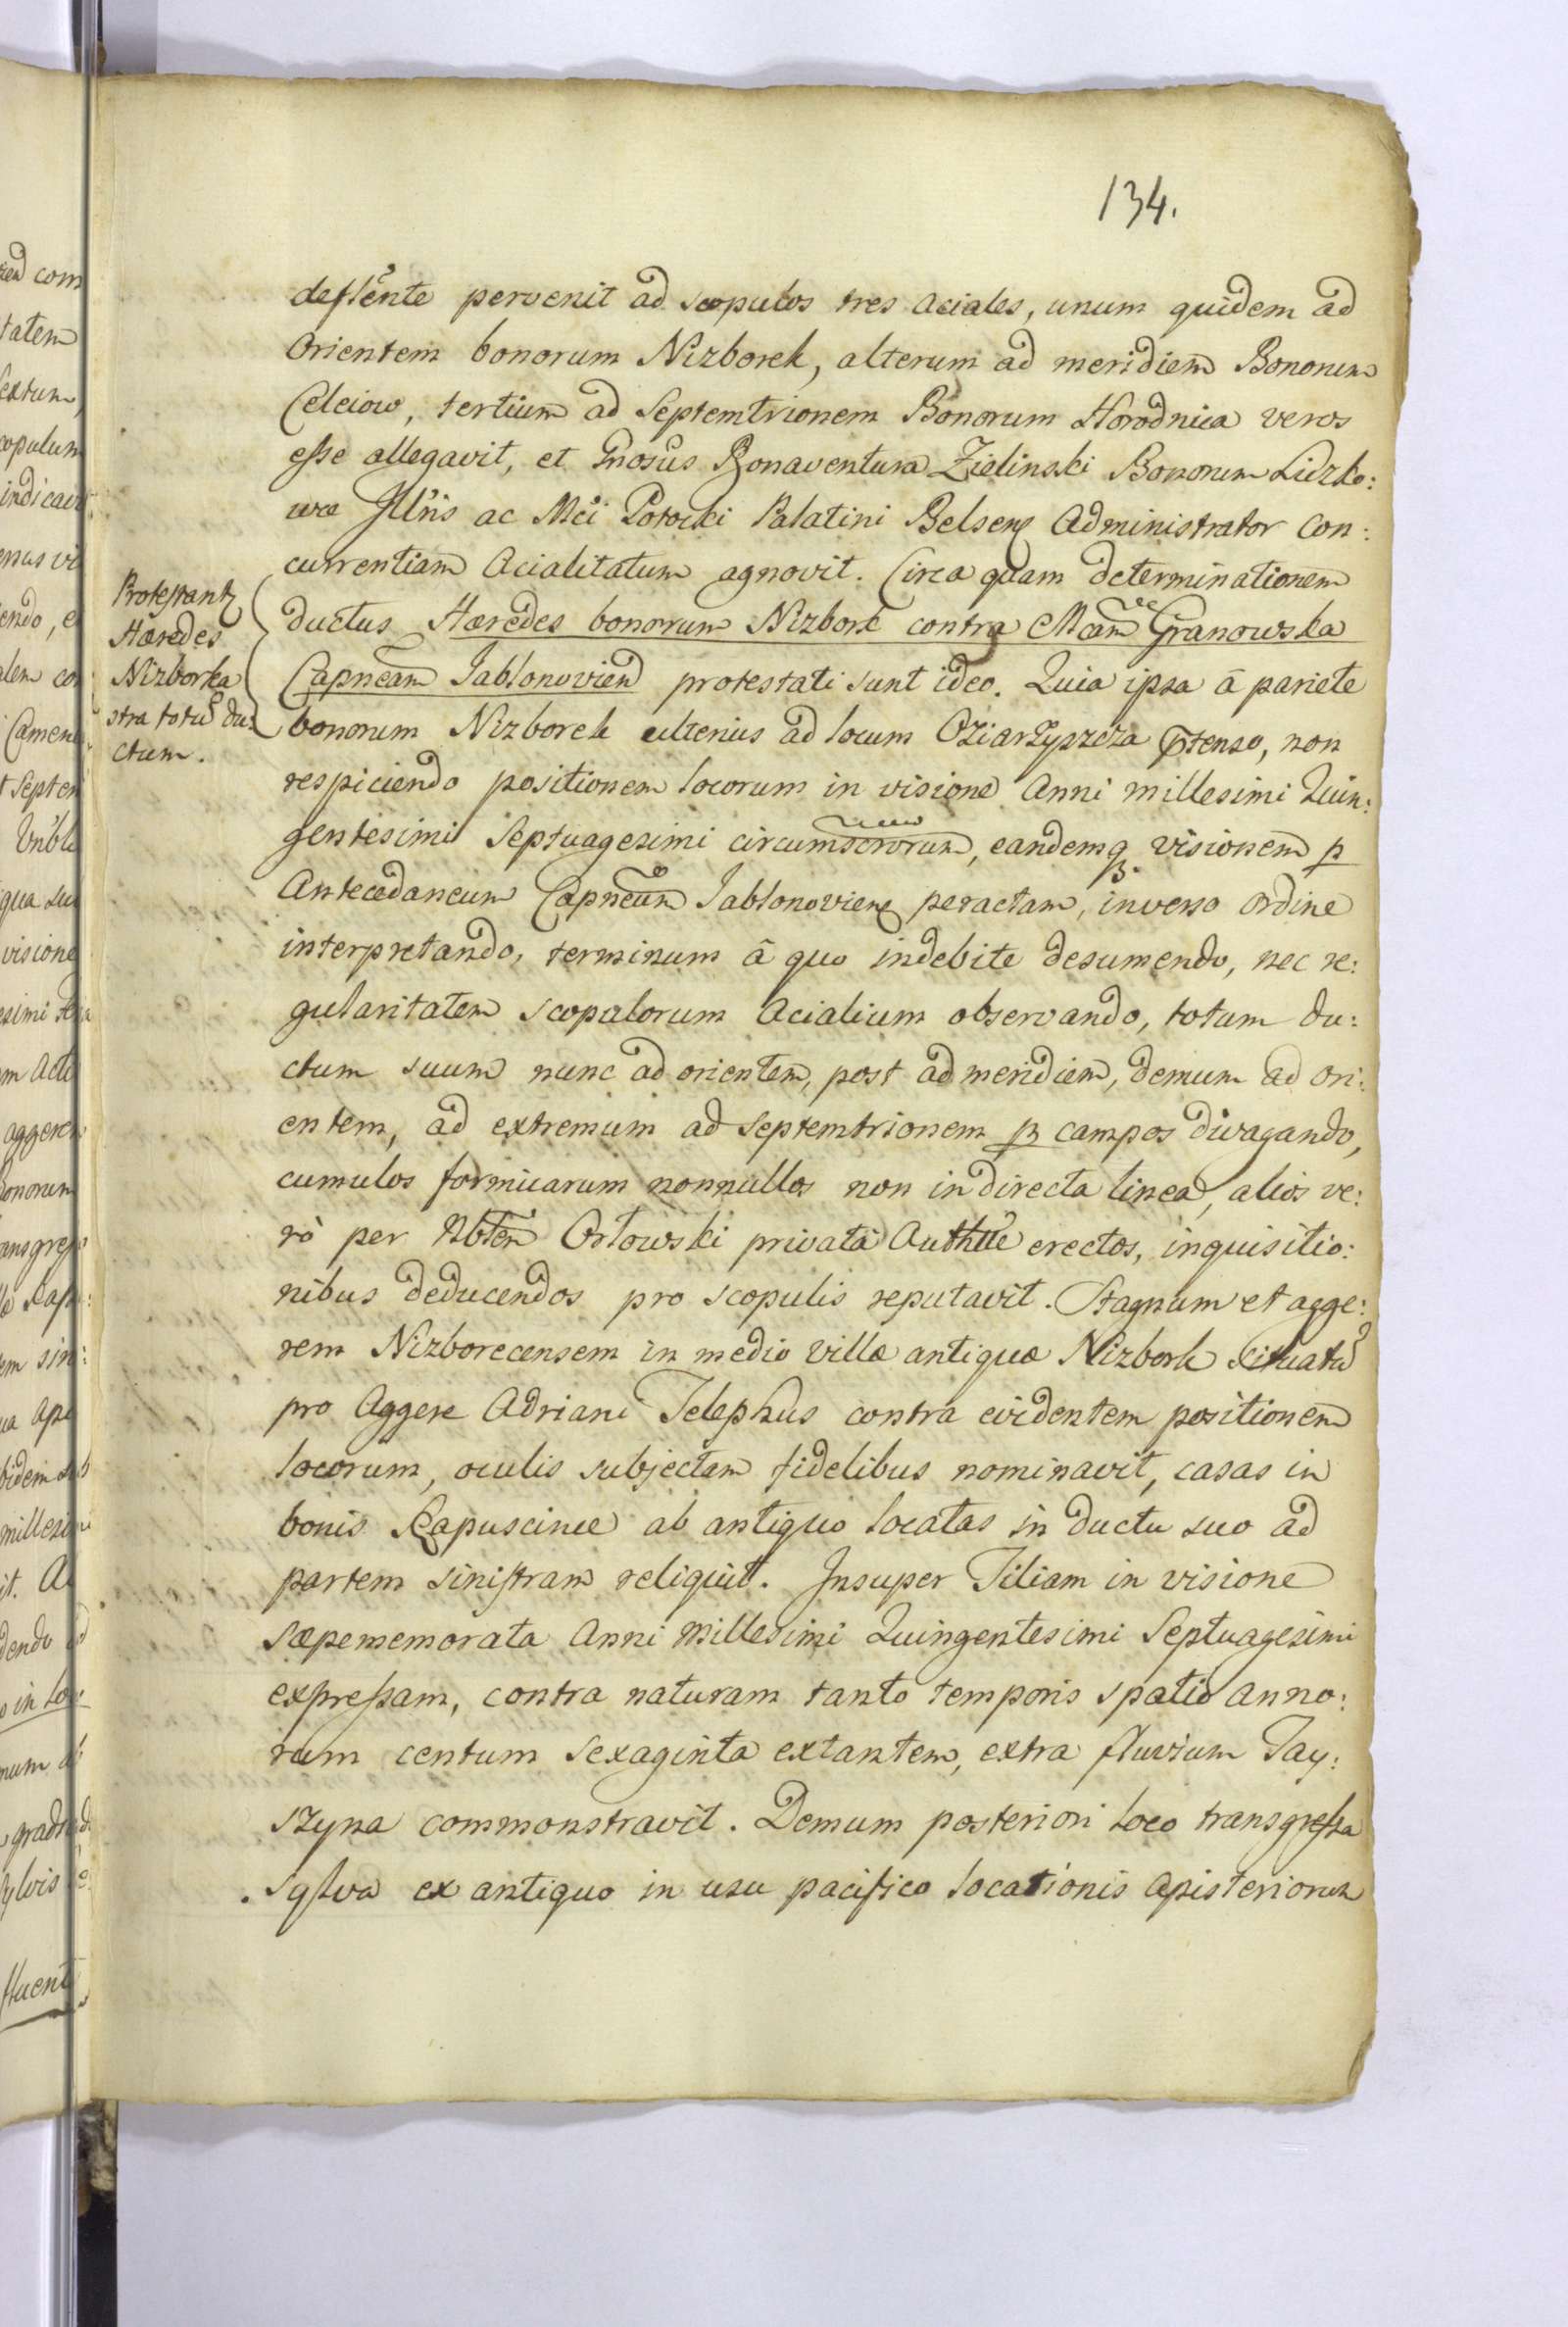 134.
desſente pervenit ad scopulos tres aciales, unum quidem ad
Orientem bonorum Nizborek, alterum ad meridiem Bonorum
Celeiow, tertium ad Septemtrionem Bonorum Horodnica veros
eſse allegavit, et Gnosus Bonaventura Zielinski Bonorum Lidzko:
wce Jllris ac Mci Potocki Palatini Belsens Administrator con:
currentiam Acialitatum agnovit. Circa quam determinationem
Protestantz
Hæredes
Nizborka
ctra totũ du:
ctum.
ductus Hæredes bonorum Nizbork contra Mcam Granowska
Capneam Jablonovien protestati sunt ideo. Quia ipsa â pariete
bonorum Nizborek ulterius ad locum Oziarzyszcza ptenso, non
respiciendo positionem locorum in visione Anni millesimi Quin:
gentesimi Septuagesimi circum, eandemq visionem p
Antecedaneum Capneum Jablonoviens peractam, inverso ordine
interpretando, terminum â quo indebite desumendo, nec re:
gularitatem scopulorum Acialium observando, totum du:
ctum suum nunc ad orientem, post ad meridiem, demum ad ori:
entem, ad extremum ad septemtrionem p campos divagando,
cumulos formicarum nonnullos non in directa linea, alios ve:
rò per Nbłem Orłowski privatâ Authtte erectos, inquisitio:
nibus deducendos pro scopulis reputavit. Stagnum et agge:
rem Nizborecensem in medio villæ antiquæ Nizbork situatũ
pro Aggere Adriani Telephus contra evidentem positionem
locorum, oculis subjectam fidelibus nominavit, casas in
bonis Kapuscince ab antiquo locatas in ductu suo ad
partem siniſtram reliquit. Jnsuper Tiliam in visione
sæpememorata Anni Millesimi Quingentesimi Septuagesimi
expreſsam, contra naturam tanto temporis spatio anno:
rum centum sexaginta extantem, extra fluvium Tay:
szyna commonstravit. Demum posteriori loco transgreſsa
sylva ex antiquo in usu pacifico locationis Apisteriorum